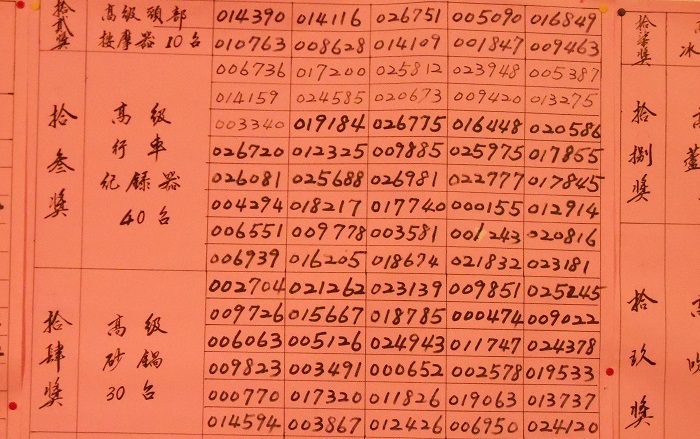 拾貳獎
高級頸部
按摩器10台
014390 014116 026751 005090 016849
010763 008628 014109 001847 009463
拾叁獎
高級
行車
紀錄器
40台
006736 017200 025812 023948 005387
014159 024585 020673 009420 013275
003340 019184 026775 016448 020586
026720 012325 009885 025975 017855
026081 025688 026981 022777 017845
004294 018217 017740 000155 012914
006551 009778 003581 001243 020816
006939 016205 018674 021832 023181
拾肆獎
高級
砂鍋
30台
002704 021262 023139 009851 025245
009726 015667 018785 000474 009022
006063 005126 024943 011747 024378
009823 003491 000652 002578 019533
000770 017320 011826 019063 013737
014594 003867 012426 006950 024120
拾柒獎
冰
拾捌獎
拾玖獎